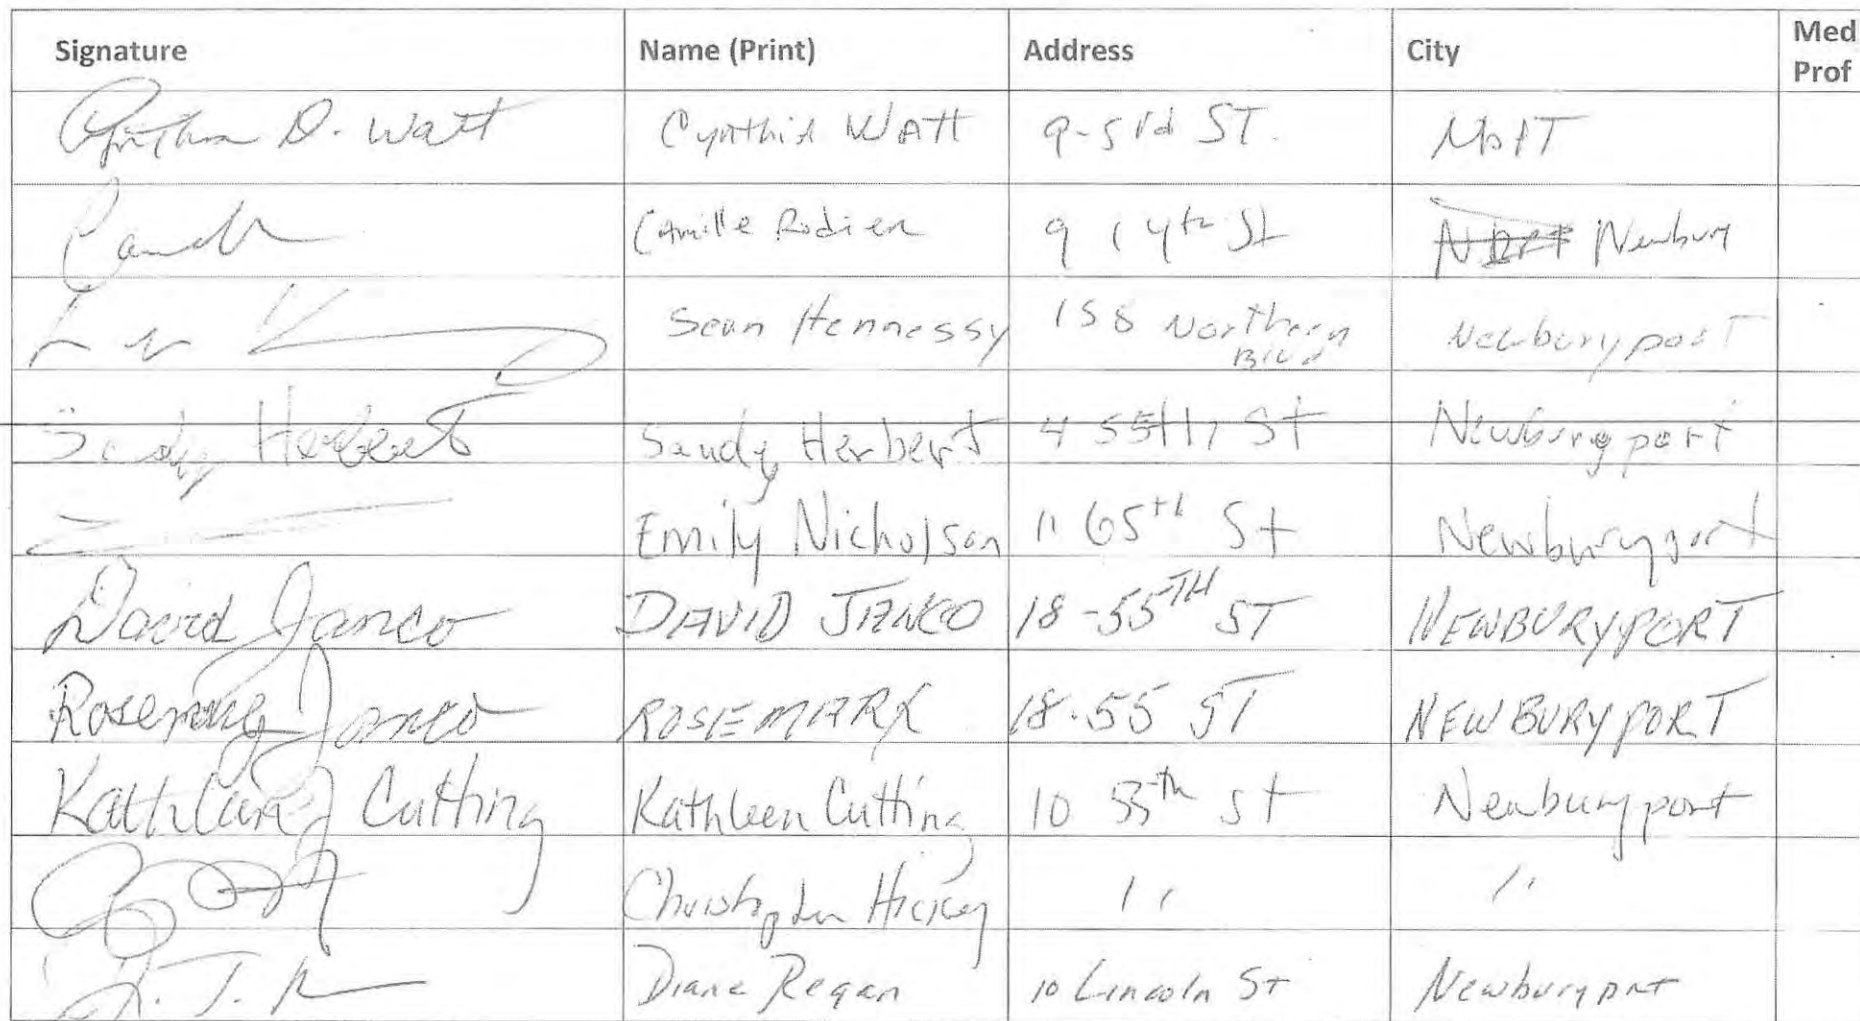 Signature Name (Print) Address City Med Prof
Cynthia D. Watt Cynthia Watt 9-53rd ST. NBPT
Camille Rodier 9 14th St NBPT Newbury
Sean Hennessy 158 Northern Blvd Newburyport
Sandy Herbert Sandy Herbert 4 55th St Newburyport
Emily Nicholson 11 65th St Newburyport
David Janco DAVID JANCO 18-55TH ST NEWBURYPORT
Rosemary Janco ROSEMARY 18-55 ST NEWBURYPORT
Kathleen J Cutting Kathleen Cutting 10 55th St Newburyport
Christopher Hickey " "
Diane Regan 10 Lincoln St Newburyport